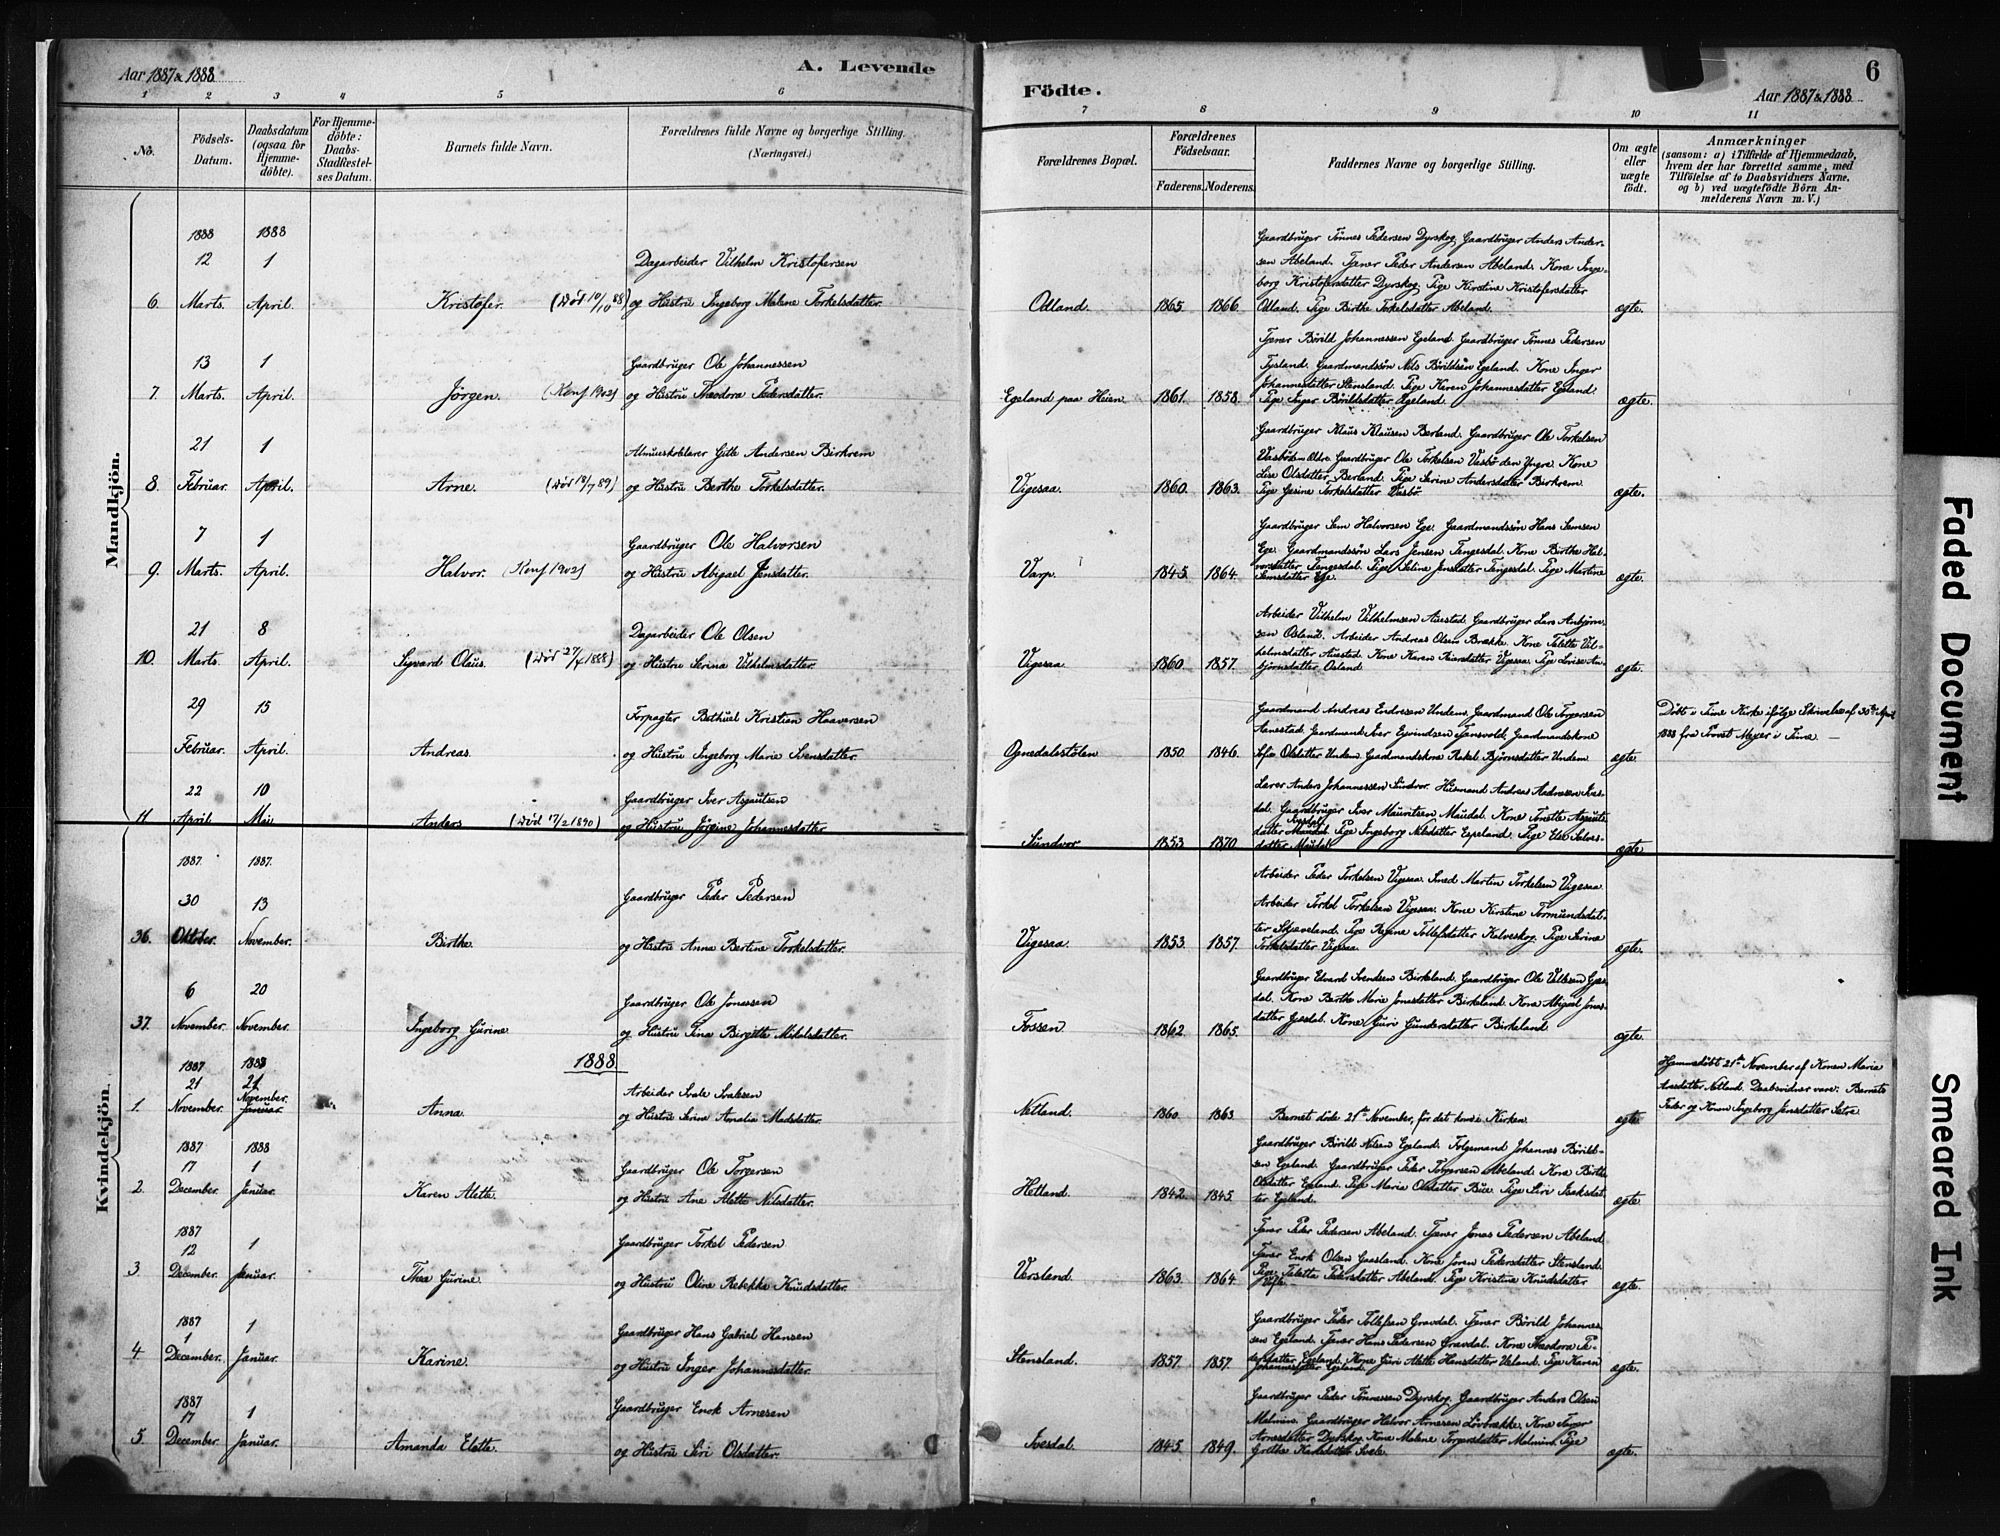 Aar 1887 & 1888
A. Levende
Födte.
Aar 1887 & 1888
6
1 2 3 4 5 6 7 8 9 10 11
No.
Födsels-
Datum.
Daabsdatum
(ogsaa for
Hjemme-
döbte).
For Hjemme-
döbte:
Daabs-
Stadfæstel-
ses Datum.
Barnets fulde Navn.
Forældrenes fulde Navne og borgerlige Stilling.
(Næringsvei.)
Forældrenes Bopæl.
Forældrenes
Födselsaar.
Faderens. Moderens.
Faddernes Navne og borgerlige Stilling.
Om ægte
eller
uægte
födt.
Anmærkninger
(saasom: a) i Tilfælde af Hjemmedaab,
hvem der har forrettet samme, med
Tilföielse af to Daabsvidners Navne,
og b) ved uægtefödte Börn An-
melderens Navn m. V.)
Mandkjön.
1888 1888
12 1
Dagarbeider Vilhelm Kristofersen
6. Marts. April. Kristofer. (Död 10/10 88) og Hustru Ingeborg Malene Torkelsdatter.
Odland. 1865. 1866.
Gaardbruger Tönnes Pedersen Dyrskog. Gaardbruger Anders Ander-
sen Abeland. Tjener Peder Andersen Abeland. Kone Inge-
borg Kristofersdatter Dyrskog. Pige Kirstine Kristofersdatter
Odland. Pige Birthe Torkelsdatter Abeland.
ægte.
13 1
Gaardbruger Ole Johannessen
7. Marts. April. Jörgen. (Konf 1902) og Hustru Theodora Pedersdatter.
Egeland paa Heien. 1861. 1858.
Tjener Börild Johannessen Egeland. Gaardbruger Tönnes Pedersen
Tysland. Gaardmandssön Nils Börildsen Egeland. Kone Inger
Johannesdatter Stensland. Pige Karen Johannesdatter Egeland.
Pige Inger Börildsdatter Egeland.
ægte.
21 1
Almueskolelærer Gitle Andersen Birkrem
8. Februar. April. Arne. (Död 18/7 89) og Hustru Berthe Torkelsdatter.
Vigesaa. 1860. 1863.
Gaardbruger Klaus Klausen Berland. Gaardbruger Ole Torkelsen
Vasbö den Ældre. Gaardbruger Ole Torkelsen Vasbö den Yngre. Kone
Lise Olsdatter Berland. Pige Serine Andersdatter Birkrem.
Pige Gesine Torkelsdatter Vasbö.
ægte.
7 1
Gaardbruger Ole Halvorsen
9. Marts. April. Halvor. (Konf 1902) og Hustru Abigael Jensdatter.
Varp. 1845. 1864.
Gaardbruger Sem Halvorsen Ege. Gaardmandssön Hans Semsen
Ege. Gaardmandssön Lars Jensen Tengesdal. Kone Birthe Hal-
vorsdatter Tengesdal. Pige Seline Jensdatter Tengesdal. Pige Martine
Semsdatter Ege.
ægte.
21 8
Dagarbeider Ole Olsen
10. Marts. April. Sigvard Olaus. (Död 27/4 1888) og Hustru Serina Vilhelmsdatter.
Vigesaa 1860. 1857.
Arbeider Vilhelm Vilhelmsen Auestad. Gaardbruger Lars Anbjörn-
sen Osland. Arbeider Andreas Olsen Brække. Kone Talette Vil-
helmsdatter Auestad. Kone Karen Peiersdatter Vigesaa. Pige Lovise An-
björnsdatter Osland.
ægte.
29 15
Forpagter Bethuel Kristian Haaversen
Februar. April. Andreas. og Hustru Ingeborg Marie Svensdatter.
Ognedalsstölen 1850. 1846.
Gaardmand Andreas Endresen Undem. Gaardmand Ole Torgersen
Aanestad. Gaardmand Iver Eyvindsen Tjensvold. Gaardmandskone
Sofie Olsdatter Undem Gaardmandskone Rakel Björnsdatter Undem
ægte.
Döbt i Time Kirke ifölge Skrivelse af 30te April
1888 fra Provst Meyer i Time. —
22 10
Gaardbruger Iver Asgautsen
11 April. Mai Anders (Död 17/2 1890) og Hustru Jörgine Johannesdatter
Sundvor 1853 1870
Lærer Anders Johannessen Sundvor. Husmand Andreas Andresen Ives-
dal. Gaardbruger Iver Mauritsen Maudal. Kone Tonette Asgauts-
datter Maudal. Pige Ingeborg Nilsdatter Espeland. Pige Else Salves-
datter Maudal.
ægte.
Kvindekjön.
1887 1887.
30 13
Gaardbruger Peder Pedersen
36. Oktober. November. Birthe. og Hustru Anna Bertine Torkelsdatter.
Vigesaa. 1853 1857.
Arbeider Peder Torkelsen Vigesaa. Smed Martin Torkelsen Vigesaa.
Arbeider Torkel Torkelsen Vigesaa. Kone Kirstine Tormundsdat-
ter Skjæveland. Pige Regine Tollefsdatter Kalveskog. Pige Serine
Torkelsdatter Vigesaa.
ægte.
6 20
Gaardbruger Ole Jonassen
37. November. November. Ingeborg Gurine. og Hustru Tina Birgitte Mikalsdatter.
Fossen. 1862 1865.
Gaardbruger Edvard Svendsen Birkeland. Gaardbruger Ole Villksen Gjes-
dal. Kone Berthe Marie Jonasdatter Birkeland. Kone Abigael Jonas-
datter Gjesdal. Kone Guri Gundersdatter Birkeland.
ægte.
1888.
1887 1888
21 21
November.
Arbeider Svale Svalesen
1. November. Januar. Anna. og Hustru Serine Amalia Madsdatter.
Netland. 1860. 1863
Barnet döde 21de November, för det kom i Kirken.
ægte.
Hjemmedöbt 21de November af Konen Maria
Aasdatter Netland. Daabsvidner vare: Barnets
Fader og Konen Ingeborg Jensdatter Sætre.
1887 1888
17 1
Gaardbruger Ole Torgersen
2. December. Januar. Karen Alette. og Hustru Ane Alette Nilsdatter.
Hetland. 1842 1845.
Gaardbruger Börild Nilsen Egeland. Folgemand Johannes Börild-
sen Egeland. Gaardbruger Peder Torgersen Abeland. Kone Birthe
Olsdatter Egeland. Pige Maria Olsdatter Bue. Pige Siri Isaksdat-
ter Egeland.
ægte.
1887
12 1
Gaardbruger Torkel Pedersen
3 December. Januar. Thea Gurine. og Hustru Oline Rebekka Knudsdatter.
Versland. 1863. 1864.
Tjener Peder Pedersen Abeland. Tjener Jonas Pedersen Abeland.
Tjener Enok Olsen Gaasland. Kone Joren Pedersdatter Stensland.
Pige Taletta Pedersdatter Abeland. Pige Kristine Knudsdatter
ægte.
1887
1 1
Gaardbruger Hans Gabriel Hansen
4 December. Januar. Karine. og Hustru Inger Johannesdatter.
Stensland. 1857. 1857.
Gaardbruger Peder Tollefsen Gravdal. Tjener Börild Johannes-
sen Egeland. Tjener Hans Pedersen Gravdal. Kone Theodora Pe-
dersdatter Egeland. Kone Guri Alette Hansdatter Veland. Pige Karen
Johannesdatter Egeland.
ægte.
1887
17 1
Gaardbruger Enok Arnesen
5. December. Januar. Amanda Elette. og Hustru Siri Olsdatter.
Ivesdal. 1845. 1849.
Gaardbruger Peder Tönnessen Dyrskog. Gaardbruger Anders Olsen
Malmim. Gaardbruger Halvor Arnesen Lövbrække. Kone Inger
Arnesdatter Dyrskog. Kone Malene Torgersdatter Malmim. Pige
Grethe Karlsdatter Svele.
ægte.
Faded Document
Smeared Ink